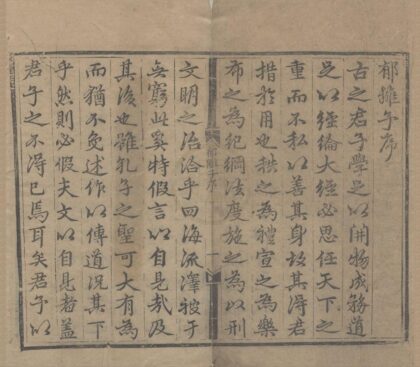 郁離子序
古之君子學足以開物成務道
足以經綸大經必思任天下之
重而不私以善其身故其得君
措於用也秩之為禮宣之為樂
布之為紀綱法度施之為政刑
文明之治洽乎四海流澤被于
無窮此奚特假言以自見哉及
其後也雖孔子之聖可大有為
而猶不免述作以傳道況其下
乎然則必假夫文以自見者蓋
君子之不得已焉耳矣君子以